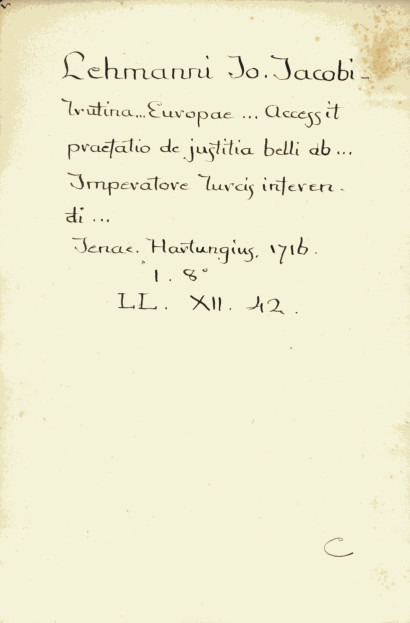 Lehmanni Jo. Jacobi-
Trutina... Europae ... Accessit
praefatio de justitia belli ab ...
Imperatore Turcis inferen-
di ...
Jenae. Hartungius. 1716.
1. 8°
LL. XII. 42.
C